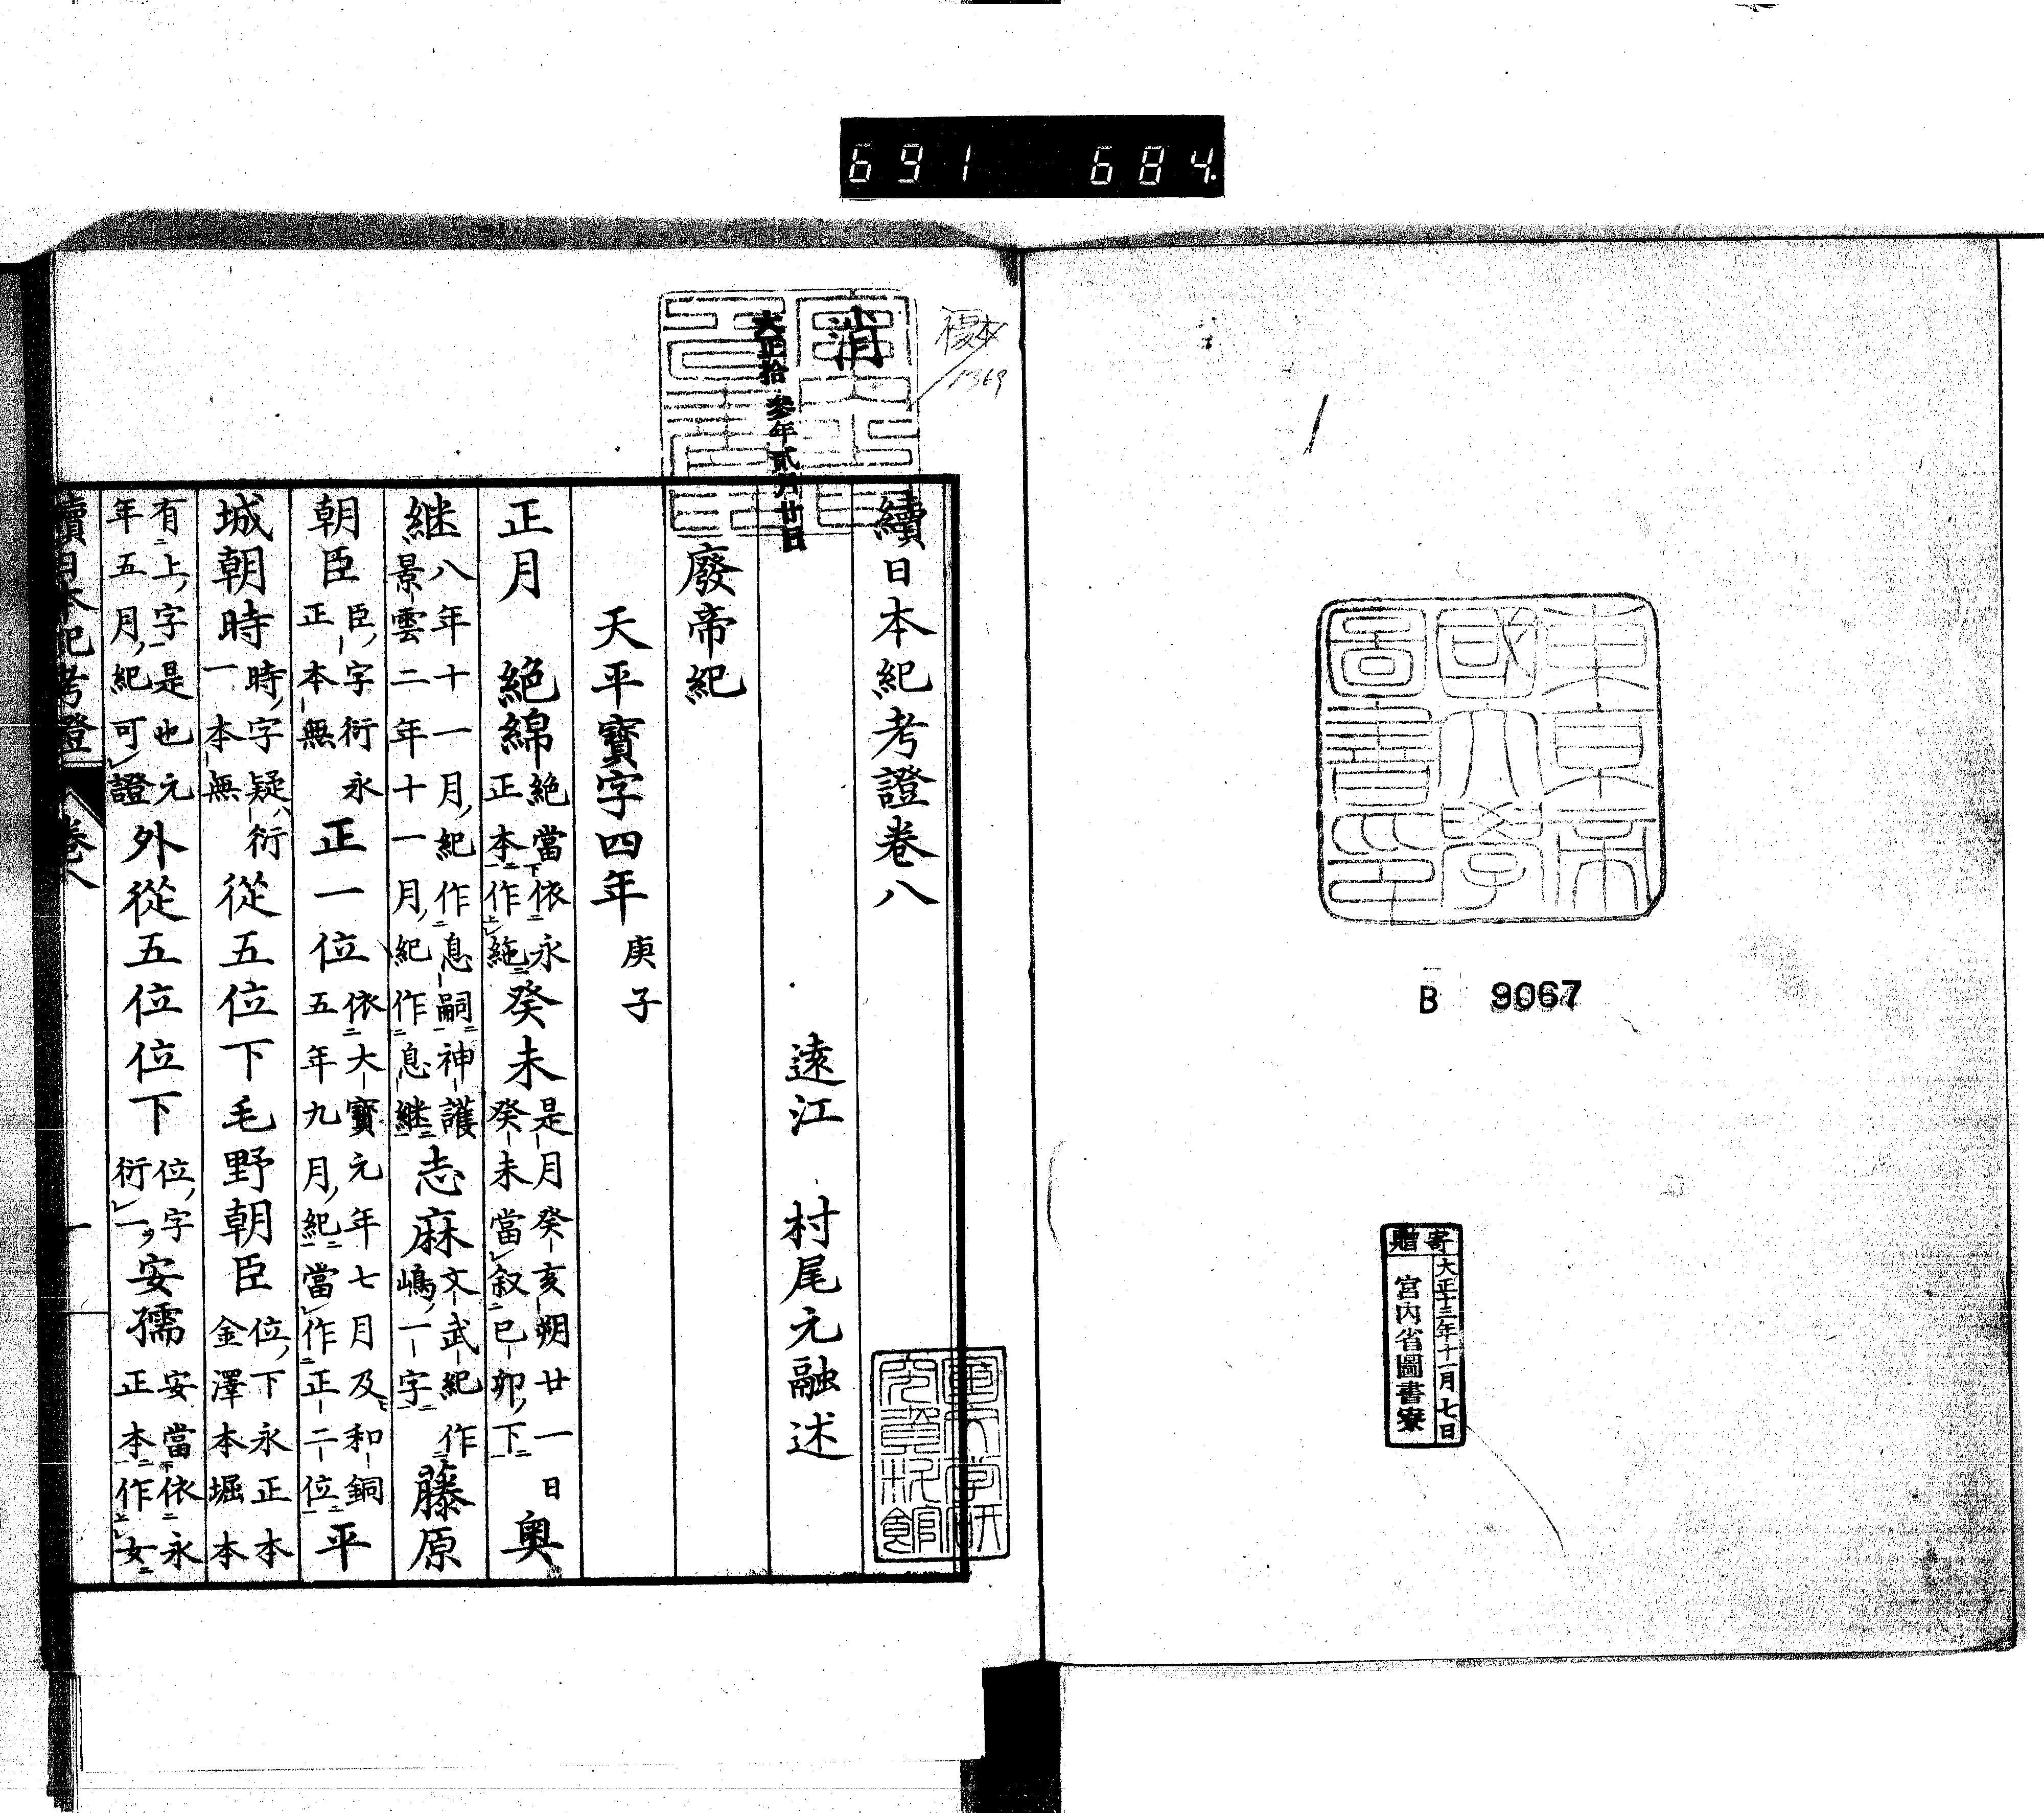 691 684
東京帝
國大學
圖書印
B 9067
寄贈
大正十三年十一月七日
宮內省圖書寮
複本
1369
消
大正拾參年貳月廿日
續日本紀考證卷八
遠江 村尾元融述
廢帝紀
天平寶字四年庚子
正月 絕綿絕當依永正本作絁癸未是月癸亥朔廿一日癸未當叙己卯下奧
継八年十一月紀作息嗣神護景雲二年十一月紀作息継志麻文武紀作嶋一字藤原
朝臣臣字衍永正本無正一位依大寶元年七月及和銅五年九月紀當作正二位平
城朝時時字疑衍一本無從五位下毛野朝臣位下永正本金澤本堀本
有上字是也元年五月紀可證外從五位位下位字衍一安孺安當依永正本作女
續日本紀考證 卷八 一